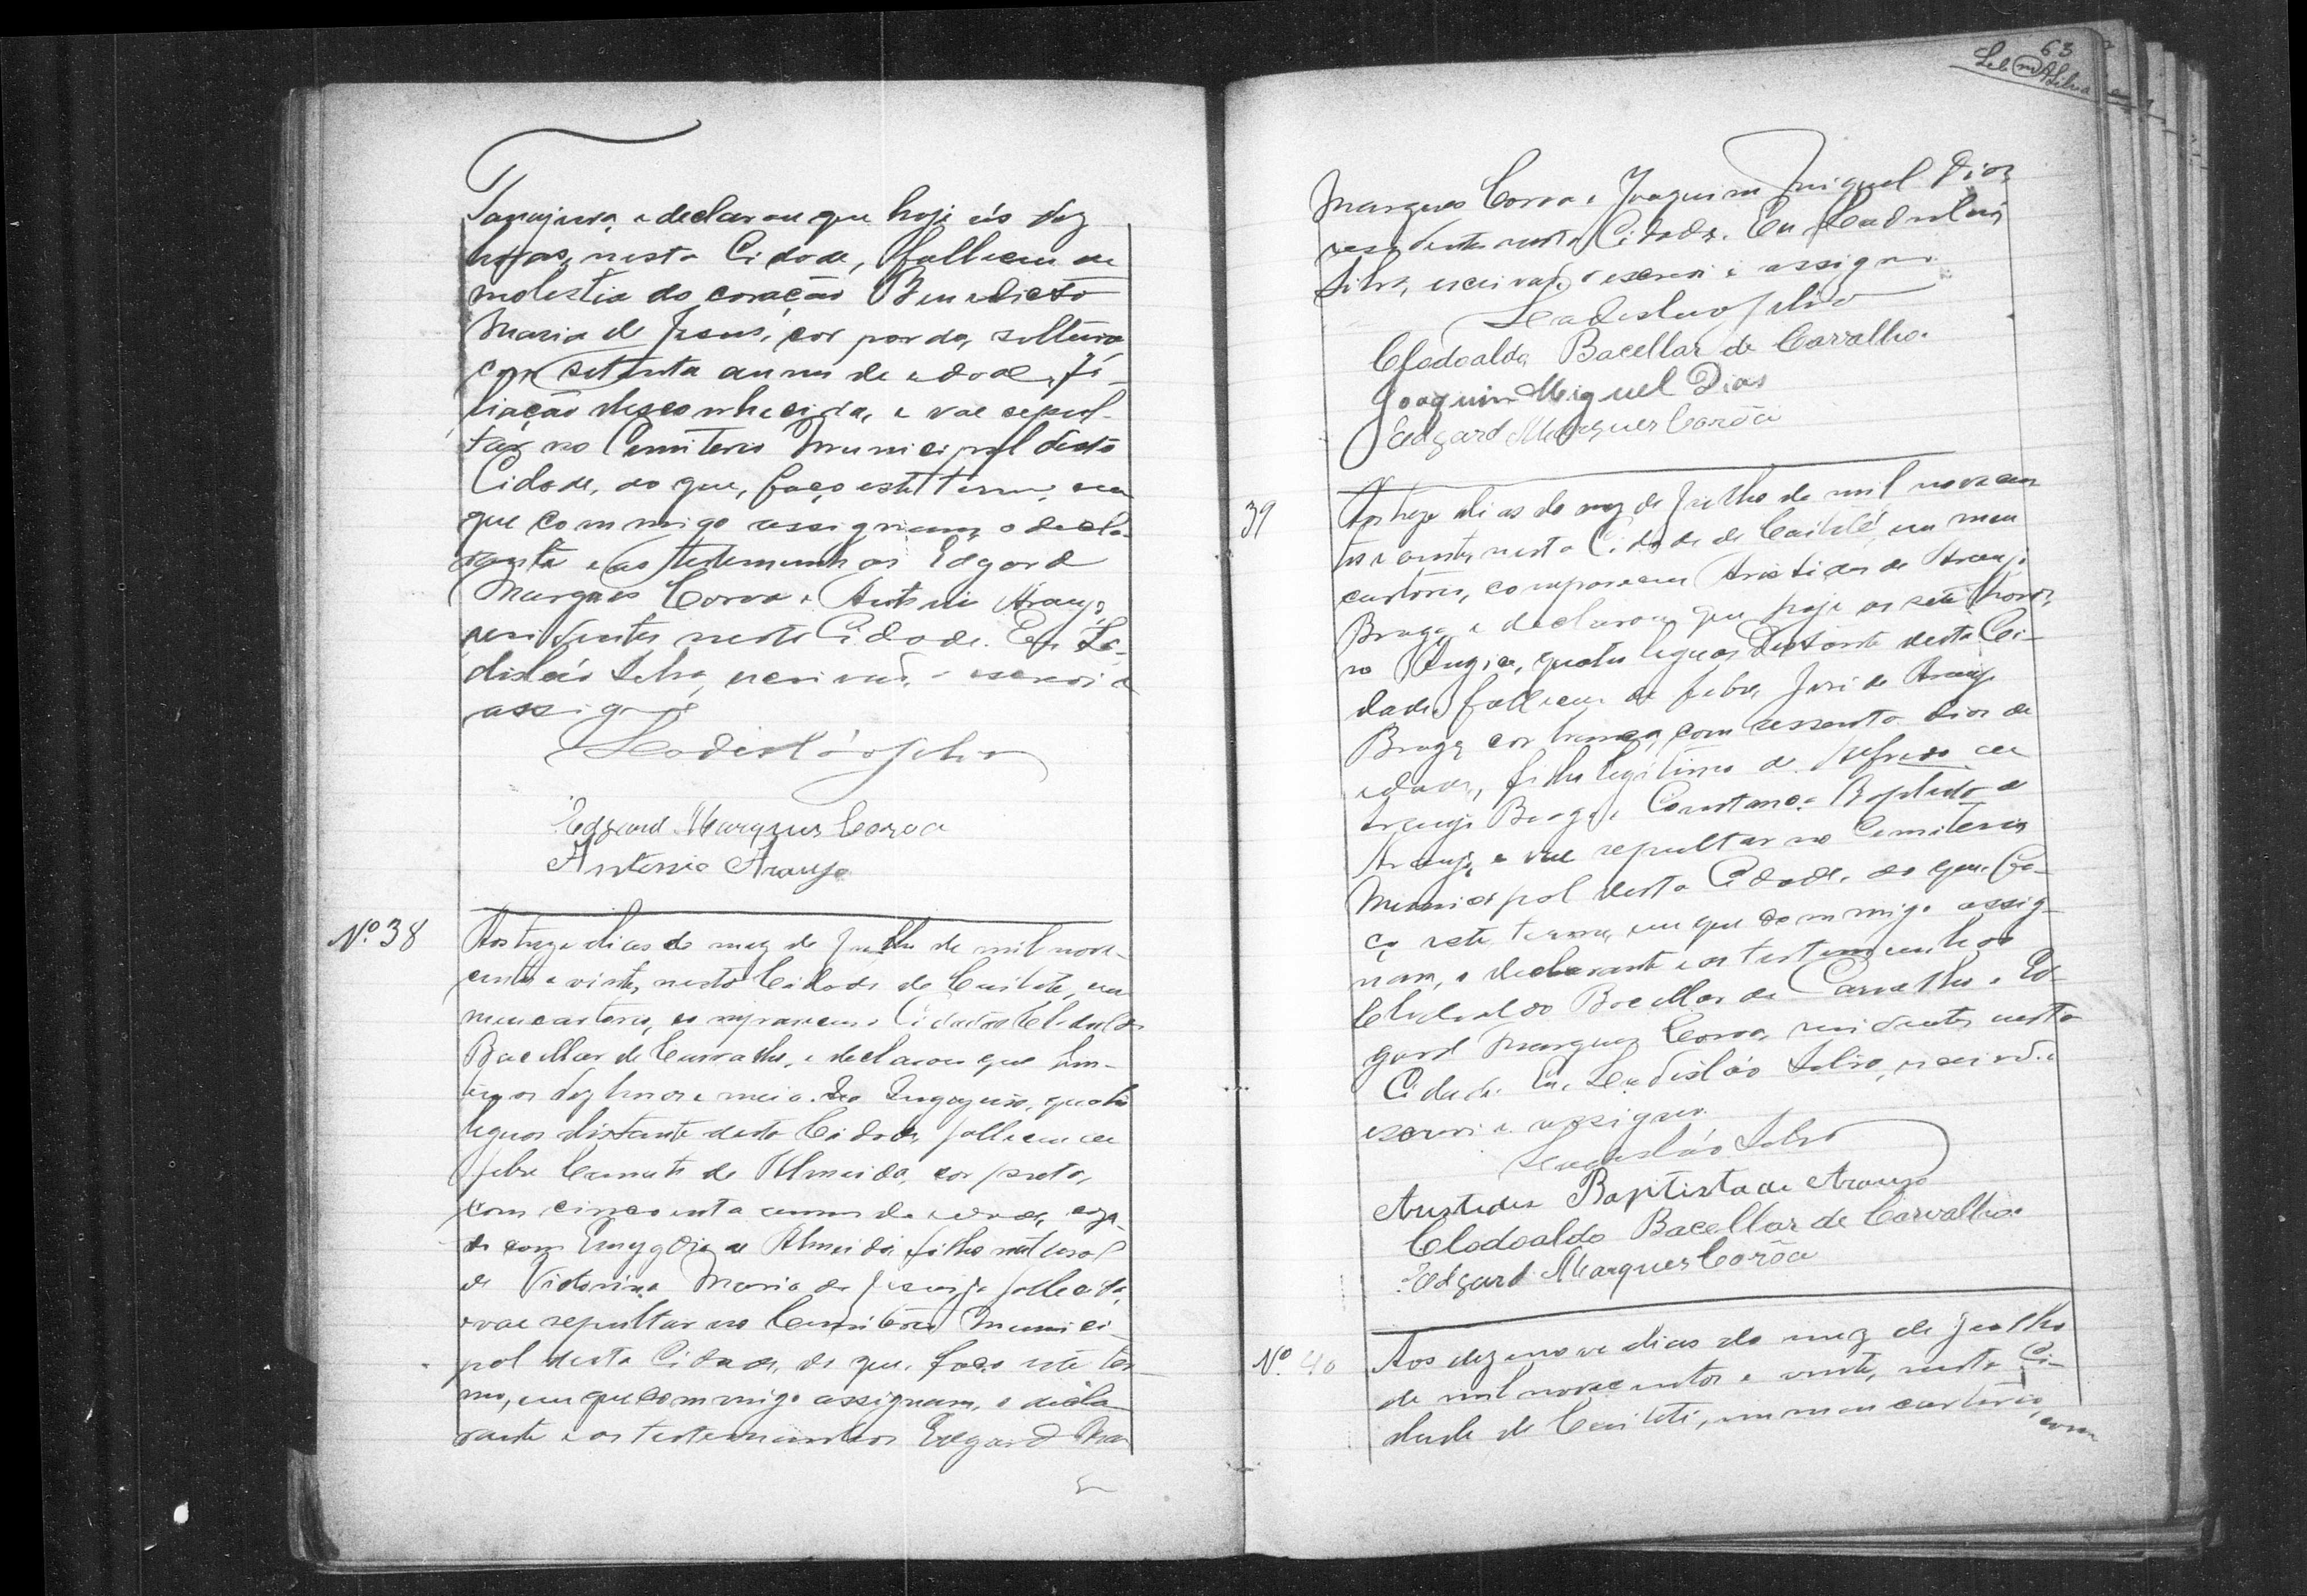 Tanajura, e declarou que hoje ás dez
horas, nesta Cidade, falleceu de
molestia do coração Benedicta
Maria de Jesus, cor parda, solteira,
com setenta annos de edade, fi-
liação desconhecida, e vae sepul-
tar no Cemiterio Municipal desta
Cidade, do que, faço este termo, em
que commigo assignam, o decla-
rante e as testemunhas Edgard
Marques Corôa e Antonio Araujo,
residentes nesta Cidade. Eu La-
disláo Silva, escrivão, o escrevi e
assigno
Ladisláo Silva
Edgard Marques Corôa
Antonio Araujo
Nº 38
Aos treze dias do mez de Julho de mil nove-
centos e vinte, nesta Cidade de Caiteté, em
meu cartorio, compareceu o Cidadão Clodoaldo
Bacellar de Carvalho, e declarou que hon-
tem as dez horas e meia. No quatro
leguas distante desta Cidade, falleceu de
febre de Almeida, cor preta,
com cincoenta annos de edade, casa-
do com Emygdia de Almeida, filho natural
de Victorina Maria de Jesus, ja fallecida,
e vae sepultar no Cemiterio Munici-
pal desta Cidade, do que, faço este ter-
mo, em que commigo assignam, o decla-
rante e as testemunhas Edgard Mar
63
Marques Corôa e Joaquim Miguel Dias,
residentes nesta Cidade. Eu Ladisláo
Silva, escrivão, o escrevi e assigno.
Ladisláo Silva
Clodoaldo Bacellar de Carvalho.
Joaquim Miguel Dias
Edgard Marques Corôa
39
Aos treze dias do mez de Julho de mil novecen
tos e vinte, nesta Cidade de Caiteté, em meu
cartorio, compareceu Aristides de Araujo
Braga e declarou que hoje as sete horas,
no quatro leguas distante desta Ci-
dade, falleceu de febre, José de Araujo
Braga, cor branca, com sessenta dias de
edade, filho legitimo de Alfredo de
Araujo Braga e Constança Baptista de
Araujo, e vae sepultar no Cemiterio
Municipal desta Cidade, do que, fa-
ço este termo, em que commigo assig-
nam, o declarante e as testemunhas
Clodoaldo Bacellar de Carvalho e Ed-
gard Marques Corôa, residentes nesta
Cidade. Eu, Ladisláo Silva, escrivão
escrevi e assigno.
Ladisláo Silva
Aristides Baptista de Araujo
Clodoaldo Bacellar de Carvalho.
Edgard Marques Corôa
Nº 40
Aos dezenove dias do mez de Julho
de mil novecentos e vinte, nesta Ci-
dade de Caiteté, em meu cartorio, com